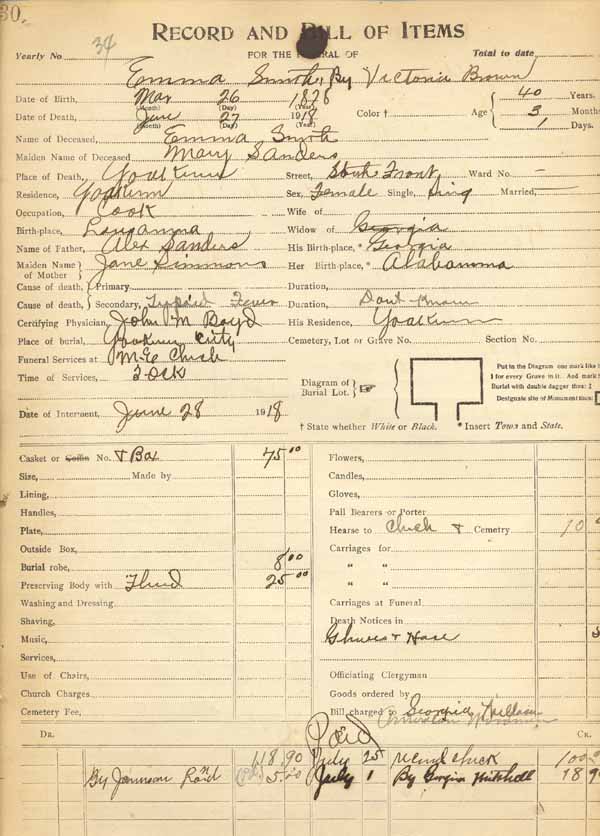 30.
34
RECORD AND BILL OF ITEMS
Yearly No
FOR THE FUNERAL OF
Total to date
Emma Smith By Victoria Brown
Date of Birth, Mar 26 1878 40 Years.
(Month) (Day) (Year)
Date of Death, June 27 1918 Color † Age 3 Months
(Month) (Day) (Year) 1 Days.
Name of Deceased, Emma Smith
Maiden Name of Deceased Mary Sanders
Place of Death, Yoakum Street, Front Ward No. —
Residence, Yoakum Sex, Female Single, Sing Married, —
Occupation, Cook Wife of
Birth-place, Widow of Georgia
Name of Father, Alex Sanders His Birth-place, * Georgia
Maiden Name of Mother Jane Simmons Her Birth-place, * Alabamma
Cause of death, Primary Duration,
Cause of death, Secondary, Typpoid Fever Duration, Dont Know
Certifying Physician, John M Boyd His Residence, Yoakum
Place of burial, City Cemetery, Lot or Grave No. Section No.
Funeral Services at M.E Chuch
Time of Services,
Diagram of Burial Lot.
Put in the Diagram one mark like t
1 for every Grave in it. And mark t
Burial with double dagger thus: ‡
Designate site of Monument thus:
Date of Interment, June 28 1918
† State whether White or Black. * Insert Town and State.
Casket or Coffin No. & Box 75 00
Size, Made by
Lining,
Handles,
Plate,
Outside Box,
Burial robe, 8 00
Preserving Body with Fluid 25 00
Washing and Dressing
Shaving,
Music,
Services,
Use of Chairs,
Church Charges
Cemetery Fee,
Flowers,
Candles,
Gloves,
Pall Bearers or Porter
Hearse to Chuch & Cemetry 10 0
Carriages for
" "
" "
Carriages at Funeral
Death Notices in
Shues & Hose
Officiating Clergyman
Goods ordered by
Bill charged to Georgia
DR. Paid CR.
118.90 July 25 check 100
By 5.00 July 1 By Georgia Mitchell 18 9